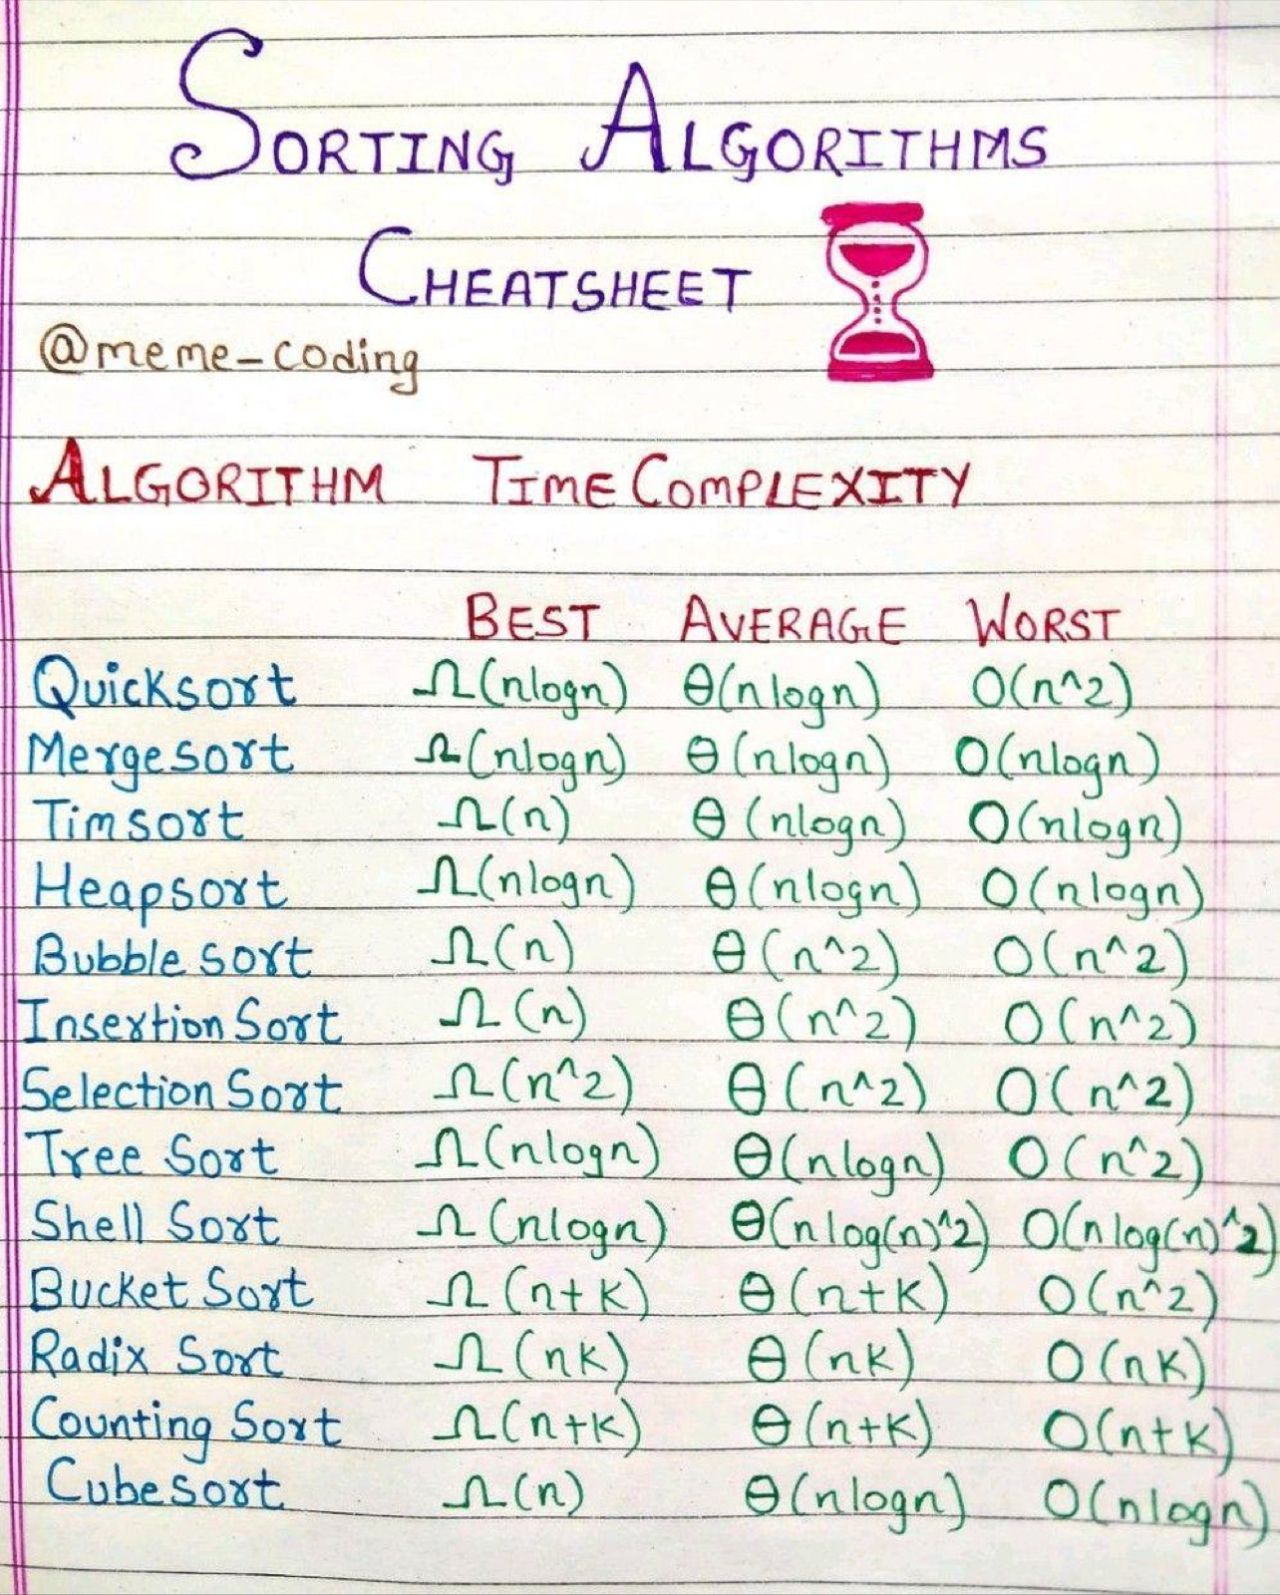 SORTING ALGORITHMS
CHEATSHEET
@meme-coding
ALGORITHM TIME COMPLEXITY
BEST AVERAGE WORST
Quicksort Ω(nlogn) θ(nlogn) O(n^2)
Mergesort Ω(nlogn) θ(nlogn) O(nlogn)
Timsort Ω(n) θ(nlogn) O(nlogn)
Heapsort Ω(nlogn) θ(nlogn) O(nlogn)
Bubble sort Ω(n) θ(n^2) O(n^2)
Insertion Sort Ω(n) θ(n^2) O(n^2)
Selection Sort Ω(n^2) θ(n^2) O(n^2)
Tree Sort Ω(nlogn) θ(nlogn) O(n^2)
Shell Sort Ω(nlogn) θ(nlog(n)^2) O(nlog(n)^2)
Bucket Sort Ω(n+k) θ(n+k) O(n^2)
Radix Sort Ω(nk) θ(nk) O(nk)
Counting Sort Ω(n+k) θ(n+k) O(n+k)
Cubesort Ω(n) θ(nlogn) O(nlogn)